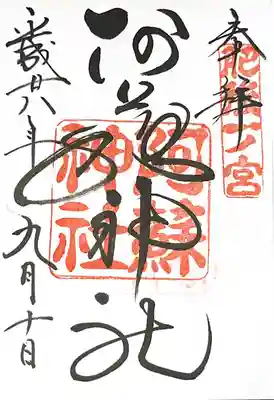 奉拝
肥後一ノ宮
阿蘇神社
阿蘇神社
平成廿八年九月十日